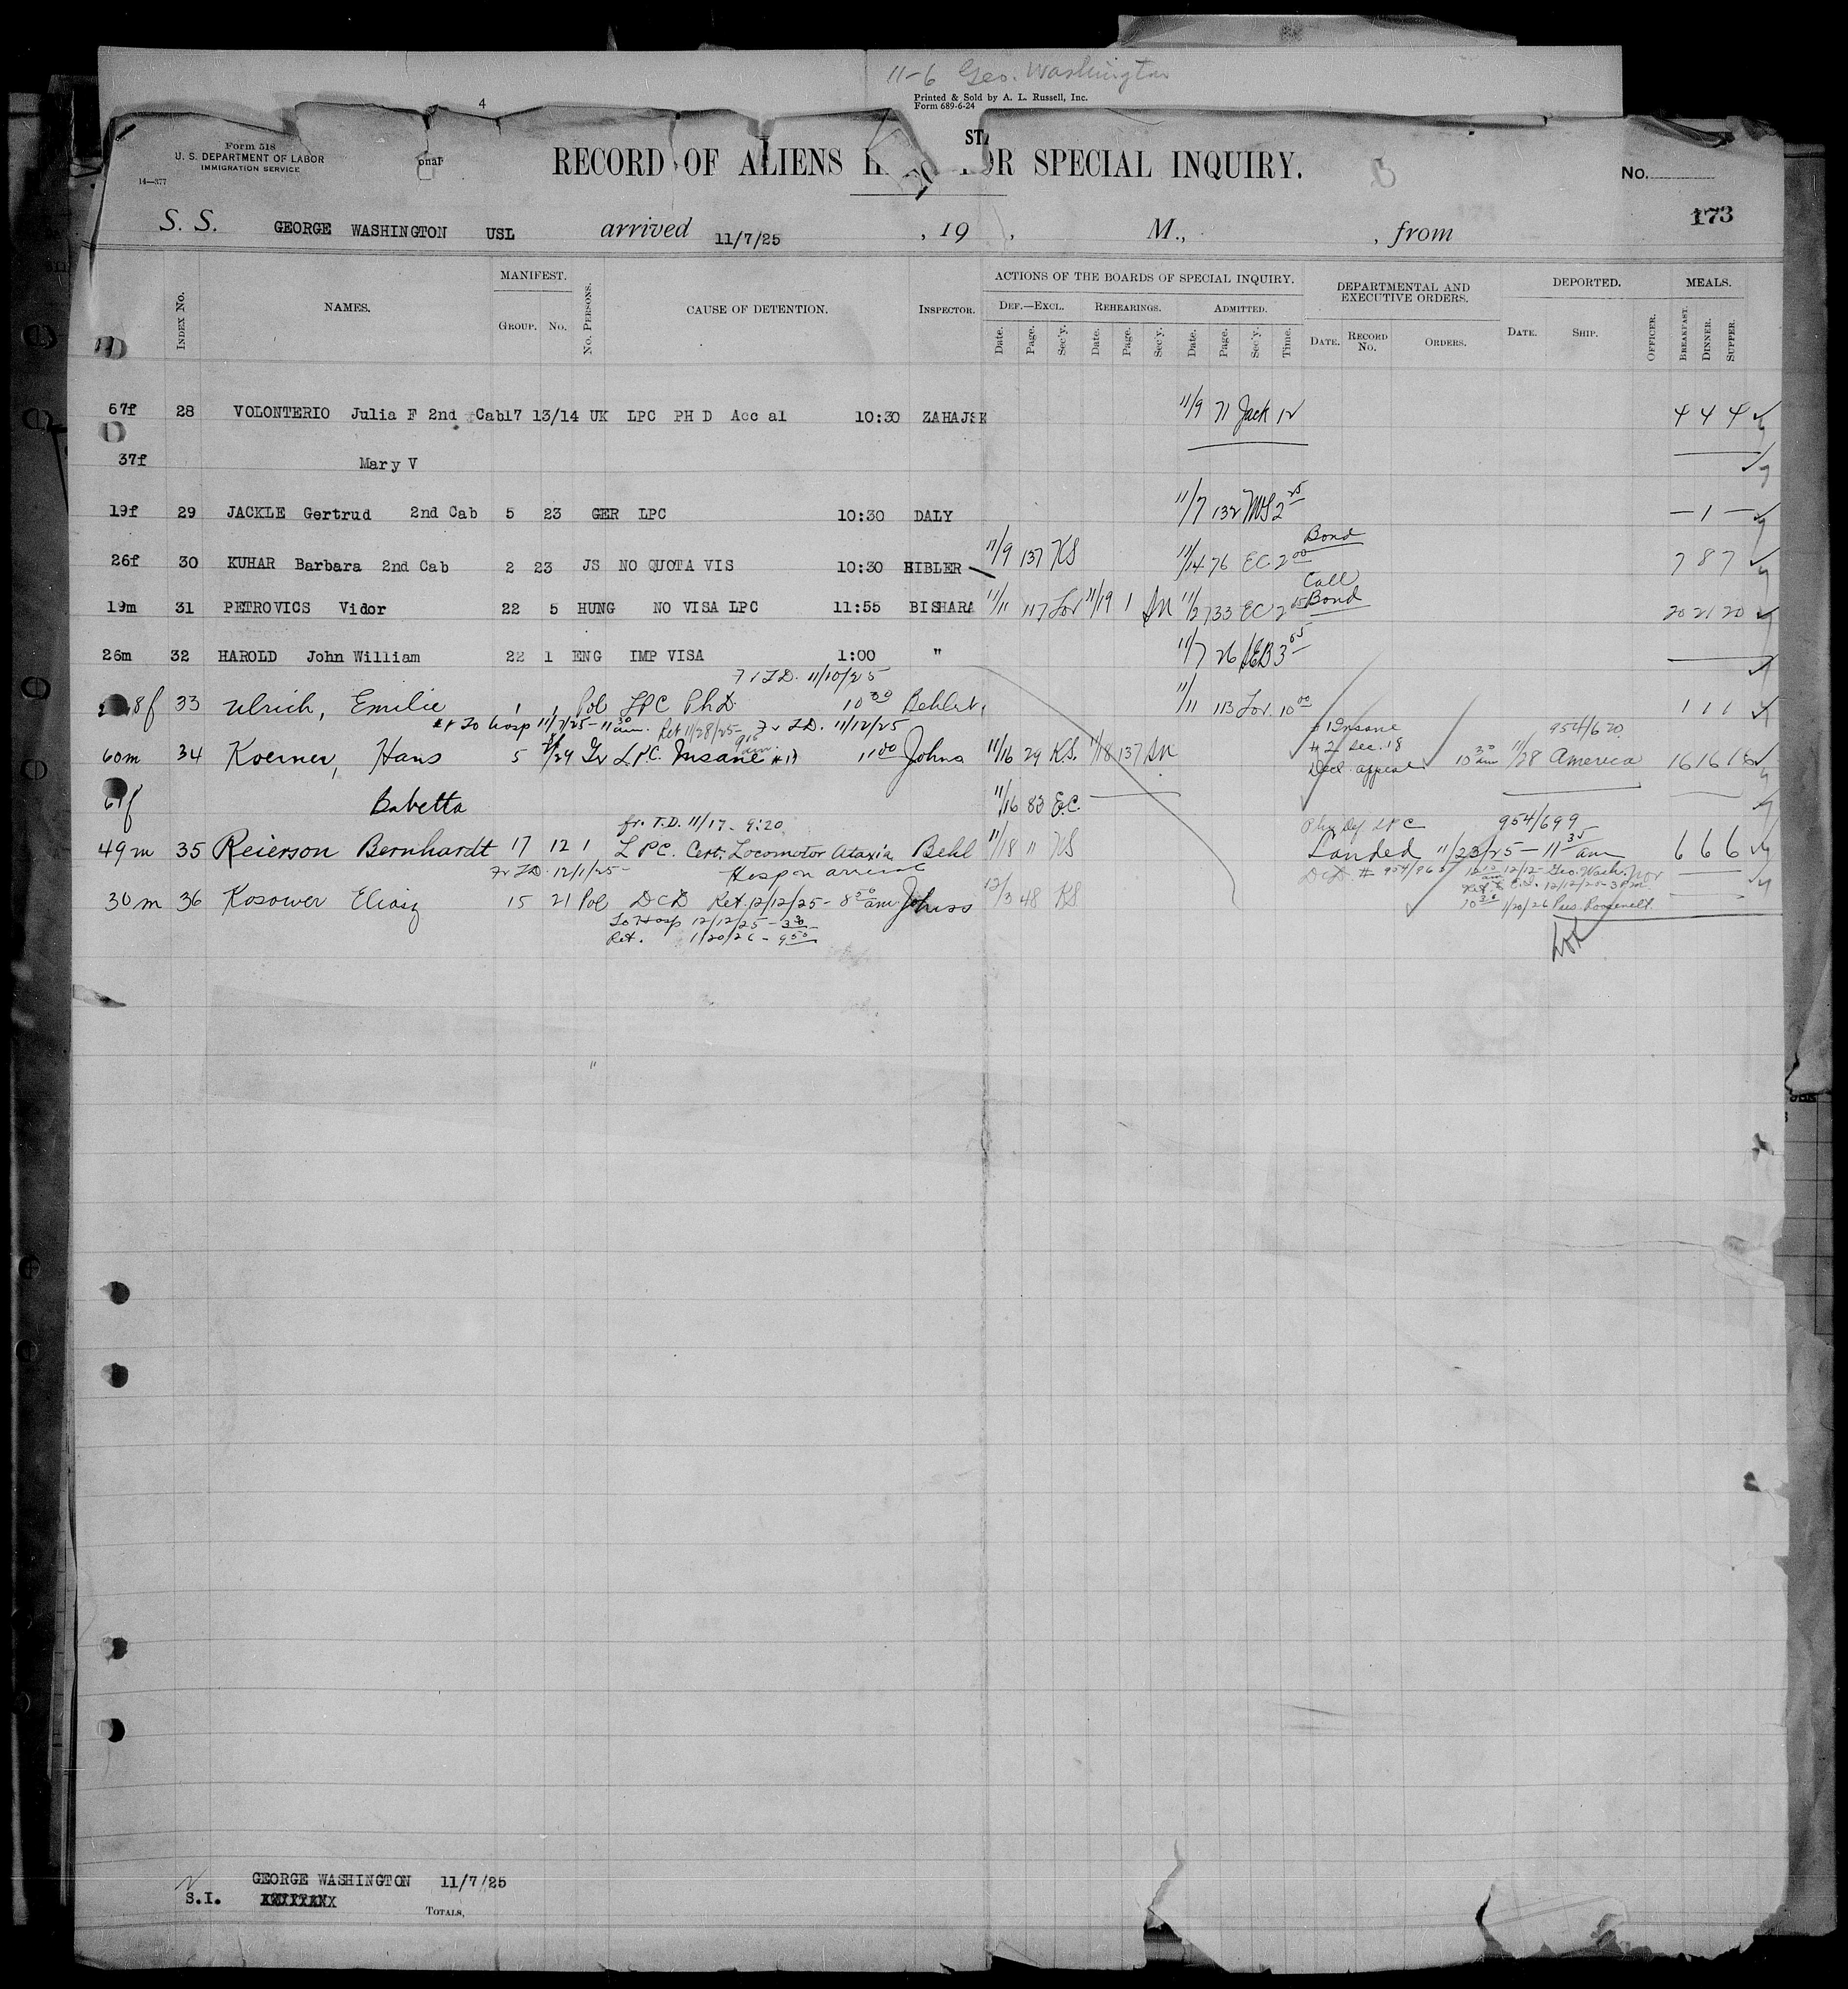 11-6 Geo. Washington
4
Printed & Sold by A. L. Russell, Inc.
Form 689-6-24
Form 518
U. S. DEPARTMENT OF LABOR
IMMIGRATION SERVICE
14—377
onal
STA
RECORD OF ALIENS H OR SPECIAL INQUIRY.
No.
173
S. S. GEORGE WASHINGTON USL arrived 11/7/25 , 19 , M., , from
INDEX No. NAMES. MANIFEST. GROUP. No. No. PERSONS. CAUSE OF DETENTION. INSPECTOR. ACTIONS OF THE BOARDS OF SPECIAL INQUIRY. DEF.—EXCL. Date. Page. Sec'y. REHEARINGS. Date. Page. Sec'y. ADMITTED. Date. Page. Sec'y. Time. DEPARTMENTAL AND EXECUTIVE ORDERS. DATE. RECORD No. ORDERS. DEPORTED. DATE. SHIP. OFFICER. MEALS. BREAKFAST. DINNER. SUPPER.
67f 28 VOLONTERIO Julia F 2nd Cab 17 13/14 UK LPC PH D Acc al 10:30 ZAHAJSK 11/9 71 Jack 12 4 4 4
37f Mary V
19f 29 JACKLE Gertrud 2nd Cab 5 23 GER LPC 10:30 DALY 11/7 132 MS 2 25 — 1 —
Bond
26f 30 KUHAR Barbara 2nd Cab 2 23 JS NO QUOTA VIS 10:30 HIBLER 11/9 137 KS 11/14 76 EC 2 00 7 8 7
Call
Bond
19m 31 PETROVICS Vidor 22 5 HUNG NO VISA LPC 11:55 BISHARA 11/11 117 Lor 11/19 1 SM 11/27 33 EC 2 15 20 21 20
26m 32 HAROLD John William 22 1 ENG IMP VISA 1:00 " 11/7 26 SEB 3 05
Fr T.D. 11/10/25
8f 33 Ulrich, Emilie 1 1 Pol LPC Ph.D. 10 30 Behlert, 11/11 113 Lor. 10 00 1 1 1
To Hosp 11/7/25 - 11 30 am. Ret 11/28/25 - 9 15 am. Fr T.D. 11/12/25
Insane 954/620
60m 34 Koerner, Hans 5 29 Gr L.P.C. Insane 11 00 Johns 11/16 29 KS. 11/18 137 SM # 2 Sec. 18 Decl. appeal 10 30 am 11/28 America 16 16 15
f Babetta 11/16 83 E.C.
fr. T.D. 11/17 - 9:20 Phy Def LPC 954/699
49m 35 Reierson Bernhardt 17 12 1 L PC. Cert. Locomotor Ataxia Behl 11/18 11 KS Landed 11/23/25 — 11 35 am 6 6 6
Fr T.D. 12/1/25 - Hosp on arrival
12/12 - Geo. Wash.
30m 36 Kosower Eliasz 15 21 Pol DCD Ret. 12/12/25 - 8 50 am Johnss 12/3 48 KS Ret to E.I. 12/12/25 - 3 PM.
To Hosp 12/12/25 - 3 30 10 30 1/20/26 Pres. Roosevelt
Ret. 1/20/26 - 9 50
"
S.I. GEORGE WASHINGTON 11/7/25
TOTALS,